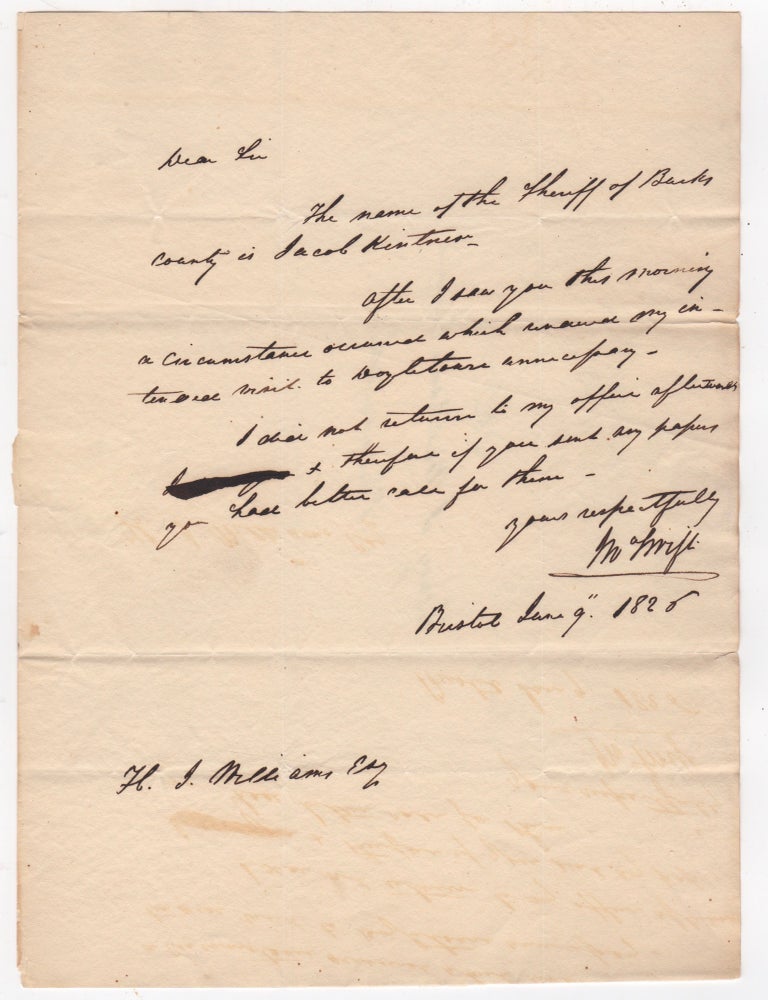 Dear Sir
The name of the Sheriff of Bucks
county is Jacob Kintner—
After I saw you this morning
a circumstance occurred which rendered my in–
tended visit to Doylestown unnecessary–
I did not return to my office afterwards
& therefore if you sent any papers
you had better call for them –
yours respectfully
Wm Swift
Bristol 9" 1826
H. J. Williams Esq